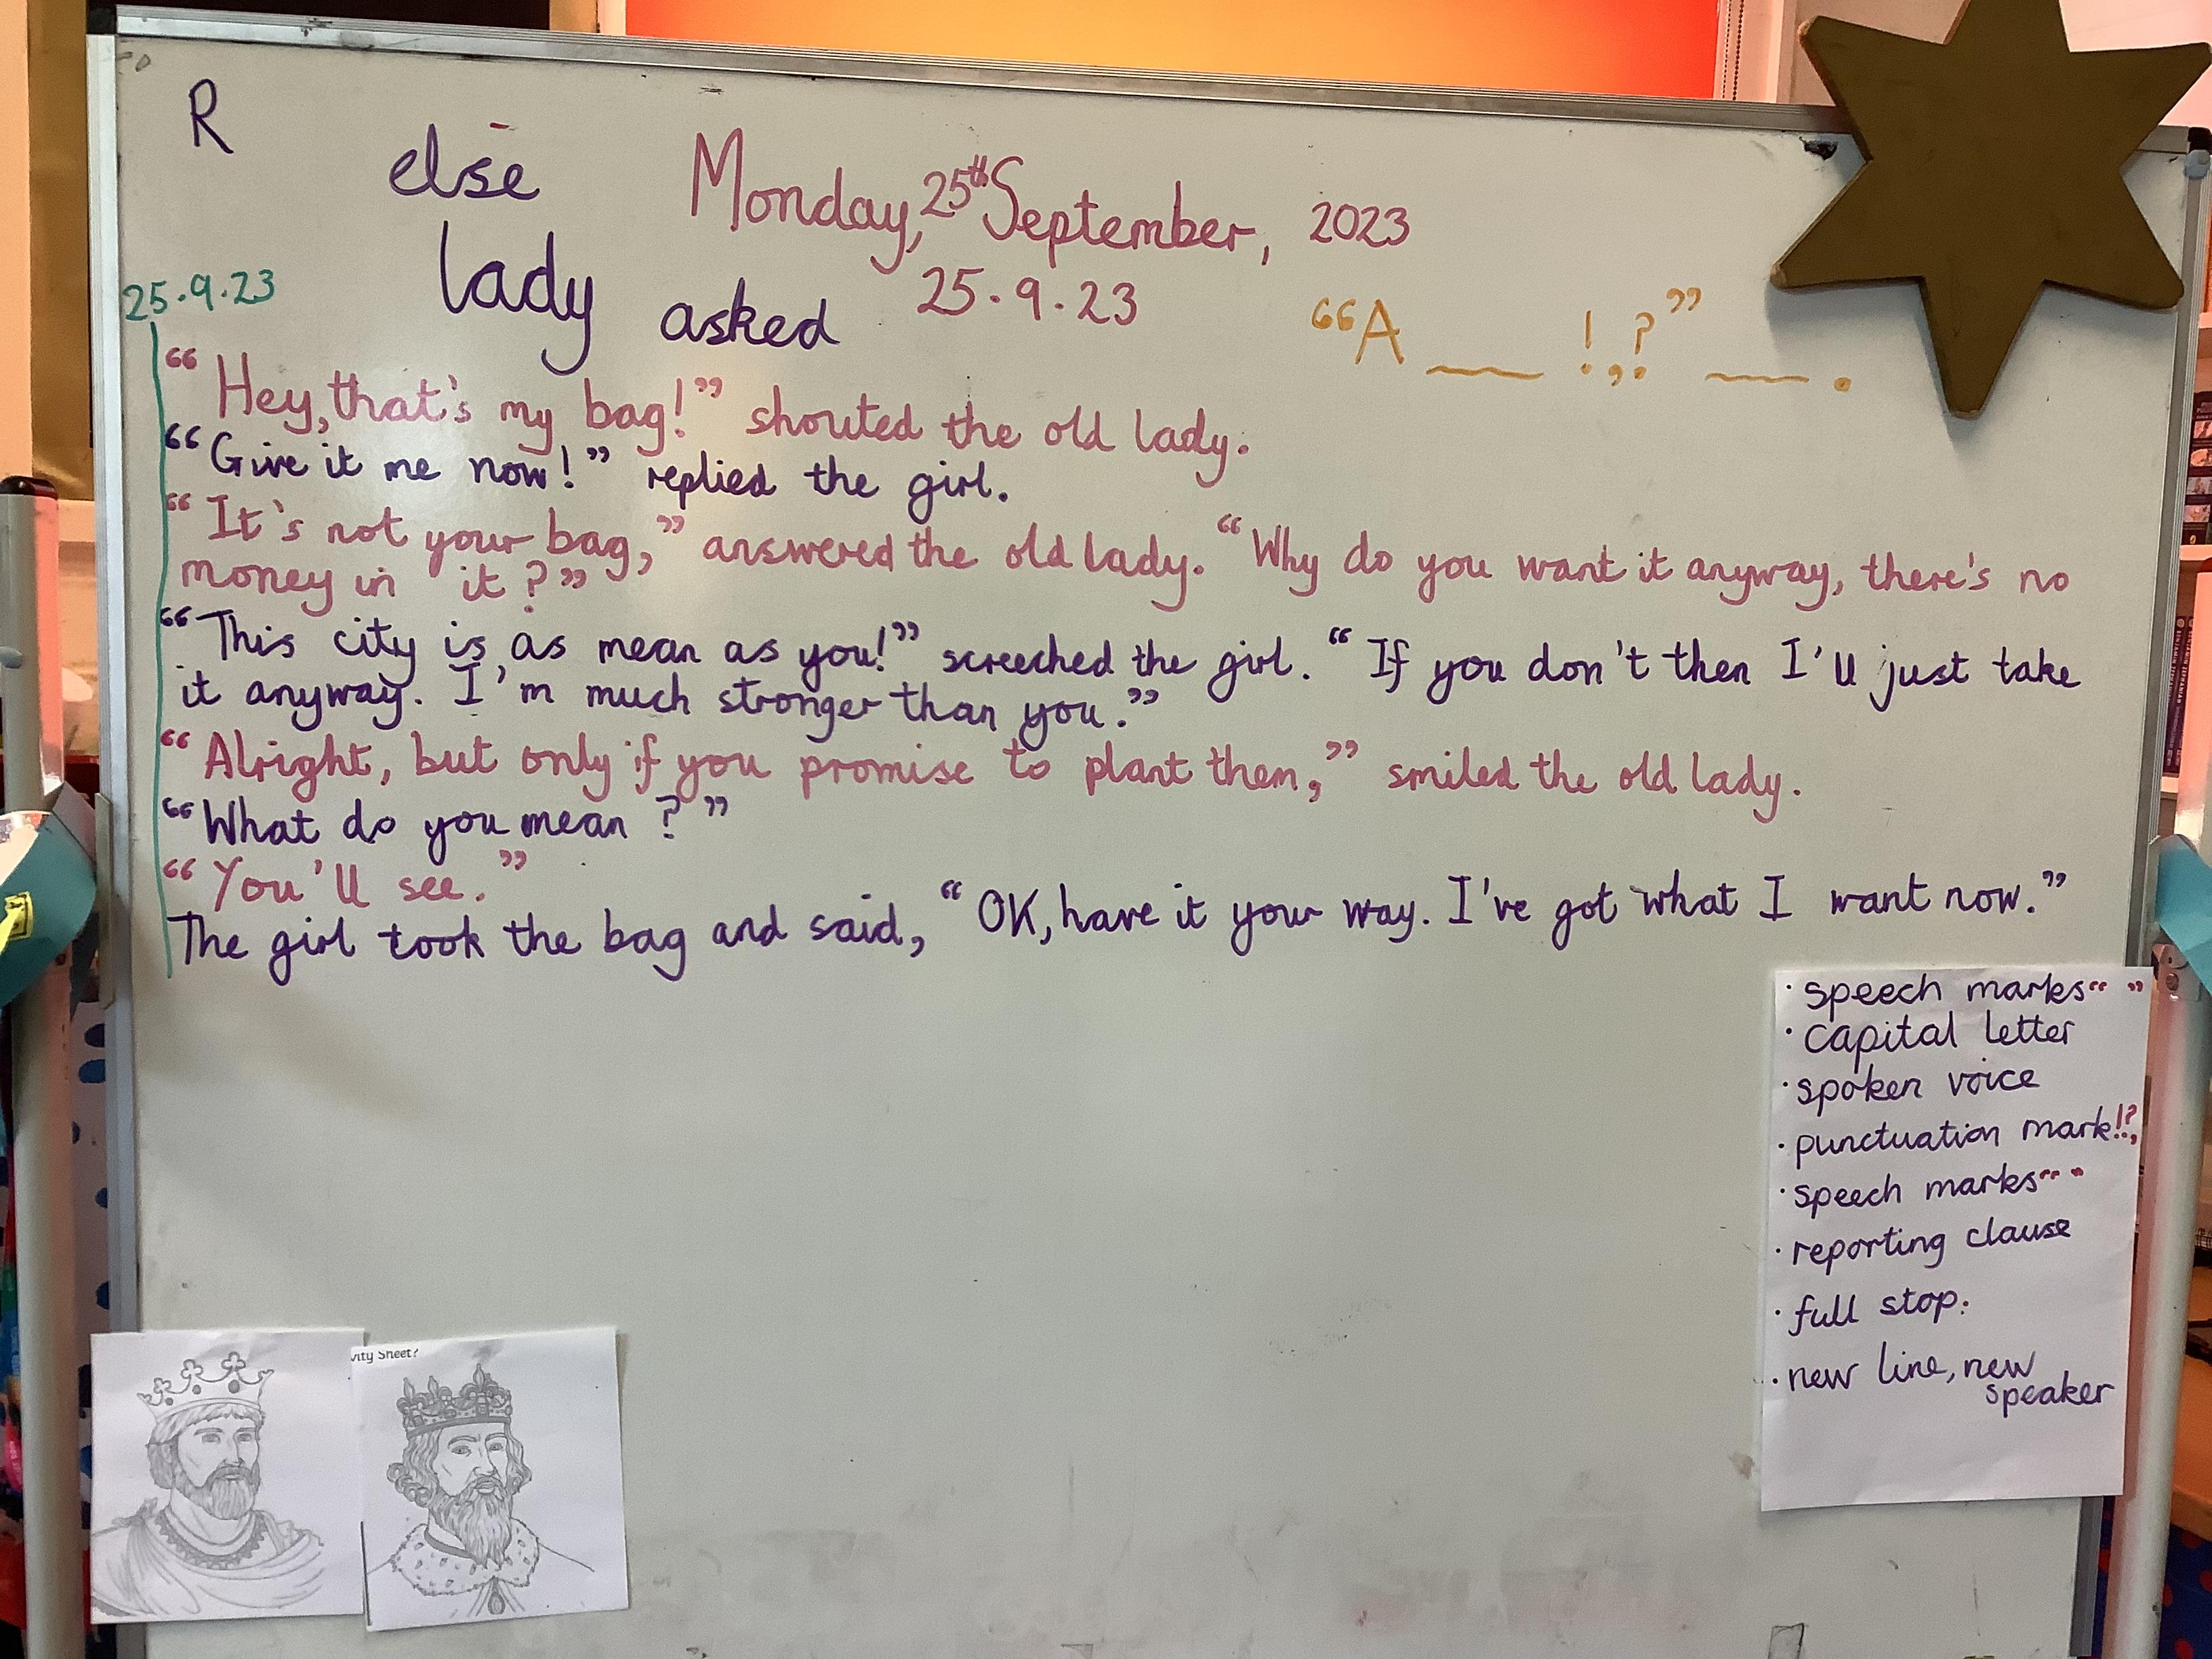 R
else
Monday, 25th September, 2023
lady asked
25.9.23
25.9.23
“A ___ !,? ” ___ .
“Hey, that's my bag!” shouted the old lady.
“Give it me now!” replied the girl.
“It's not your bag,” answered the old lady. “Why do you want it anyway, there's no
money in it?”
“This city is as mean as you!” screeched the girl. “If you don't then I'll just take
it anyway. I'm much stronger than you.”
“Alright, but only if you promise to plant them,” smiled the old lady.
“What do you mean?”
“You'll see.”
The girl took the bag and said, “OK, have it your way. I've got what I want now.”
· speech marks “ ”
· capital letter
· spoken voice
· punctuation mark !?,
· speech marks “ ”
· reporting clause
· full stop.
· new line, new
speaker
vity Sheet?